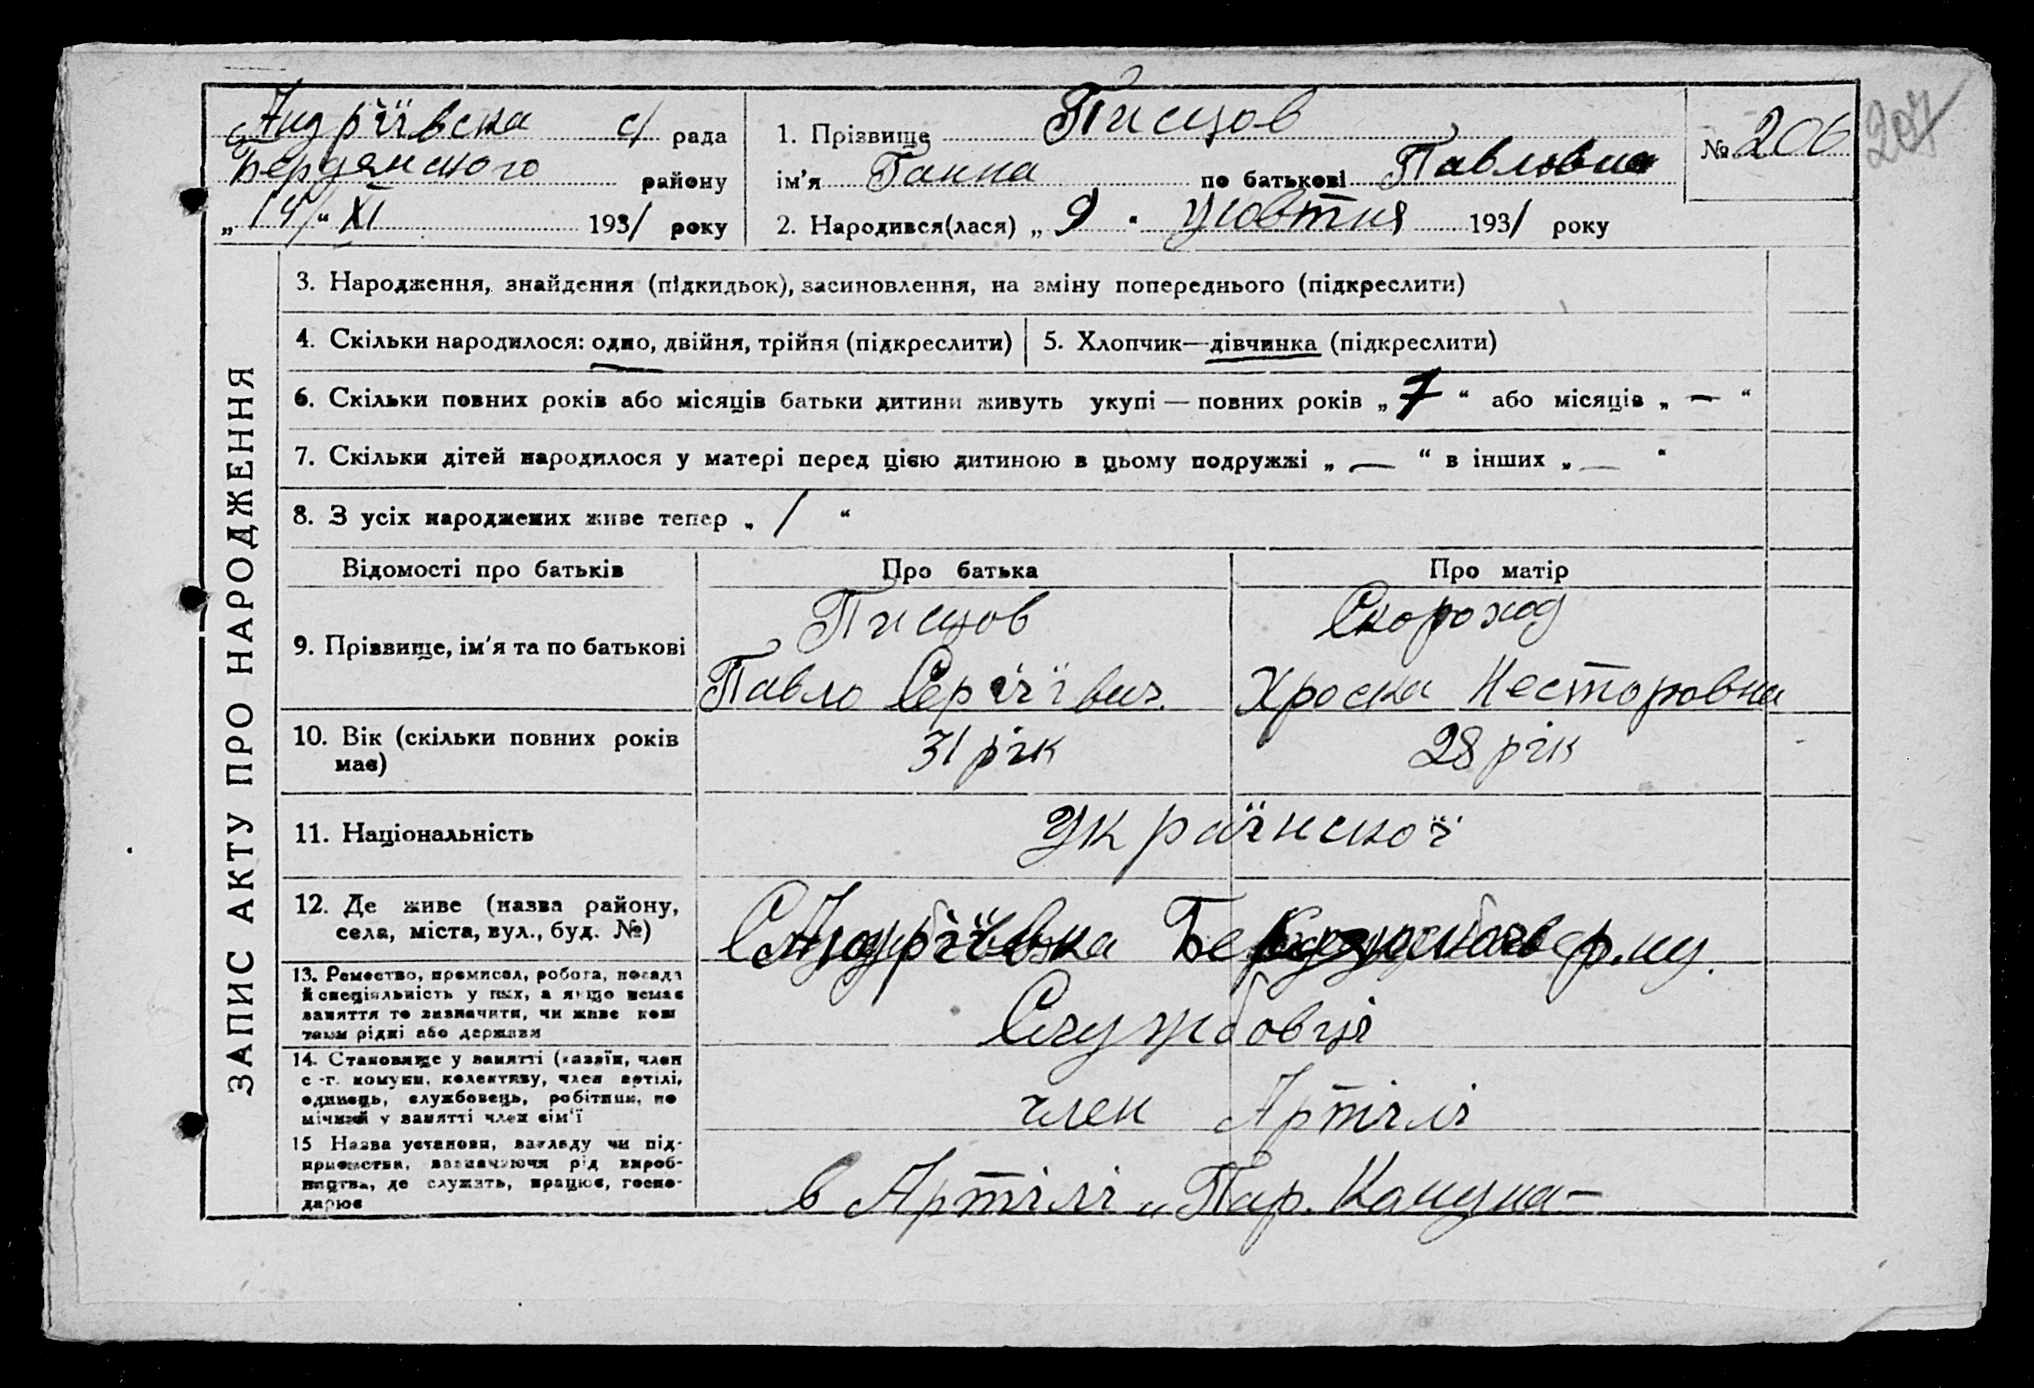 Андріївска с/ рада
Бердянского району
„14“ XI 1931 року
1. Прізвище Писцов
ім’я Ганна по батькові Павловна
2. Народився(лася) „9“ жовтня 1931 року
№ 206
207
ЗАПИС АКТУ ПРО НАРОДЖЕННЯ
3. Народження, знайдення (підкидьок), засиновлення, на зміну попереднього (підкреслити)
4. Скільки народилося: одно, двійня, трійня (підкреслити)
5. Хлопчик—дівчинка (підкреслити)
6. Скільки повних років або місяців батьки дитини живуть укупі — повних років „7“ або місяців „—“
7. Скільки дітей народилося у матері перед цією дитиною в цьому подружжі „—“ в інших „—“
8. З усіх народжених живе тепер „1“
Відомості про батьків Про батька Про матір
9. Прізвище, ім’я та по батькові
Писцов
Павло Сергіївич
Скороход
Хроска Несторовна
10. Вік (скільки повних років
має)
31 рік
28 рік
11. Національність
Украінскоі
12. Де живе (назва району,
села, міста, вул., буд. №)
С Андріївка р.ну.
13. Ремество, промисел, робота, посада
й спеціяльність у них, а якщо немає
заняття то зазначити, чи живе кош
тами рідні або держави
Службовці
14. Становище у занятті (хазяїн, член
с.-г. комуни, колективу, член артілі,
одинець, службовець, робітник, по
мічний у занятті член сім’ї
член Артілі
15 Назва установи, закладу чи під-
приємства, зазначаючи рід вироб-
ництва, де служить, працює, госпо-
дарює
в Артілі „Пар.